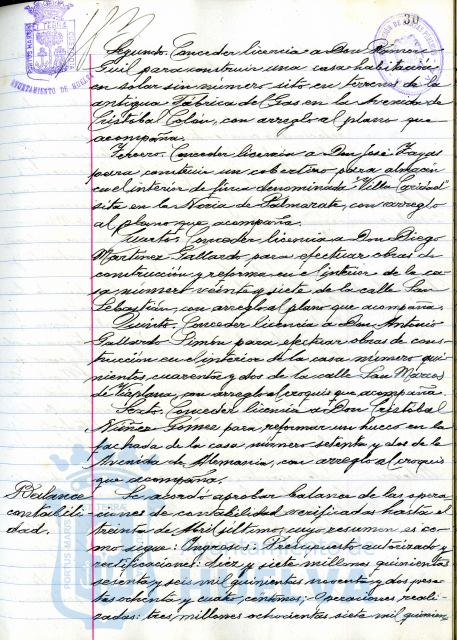 30
AYUNTAMIENTO DE HUELVA
Segundo. Conceder licencia a Don Ramon
Guil para construir una casa habitación
en solar sin número sito en terrenos de la
antigua Fábrica de Gas en la Avenida de
Cristóbal Colón, con arreglo al plano que
acompaña.
Tercero. Conceder licencia a Don José Zayas
para construir un cobertizo para almacén
en el interior de finca denominada "Villa Caridad"
sita en la Noria de Palmarate, con arreglo
al plano que acompaña.
Cuarto. Conceder licencia a Don Diego
Martinez Gallardo para efectuar obras de
construcción y reforma en el interior de la ca
sa número veinte y siete de la calle San
Sebastián, con arreglo al plano que acompaña.
Quinto. Conceder licencia a Don Antonio
Gallardo Limón para efectuar obras de cons-
trucción en el interior de la casa número qui
nientos cuarenta y dos de la calle San Marcos
de Viaplana, con arreglo al croquis que acompaña.
Sexto. Conceder licencia a Don Cristóbal
Núñez Gómez para reformar un hueco en la
fachada de la casa número setenta y dos de la
Avenida de Alemania, con arreglo al croquis
que acompaña.
Balance
contabili
dad.
Se acordó aprobar balance de las opera
ciones de contabilidad verificadas hasta el
treinta de Abril último, cuyo resumen es co
mo sigue: Ingresos: Presupuesto autorizado y
rectificaciones: diez y siete millones quinientas
sesenta y seis mil quinientas noventa y dos pese
tas ochenta y cuatro céntimos; Operaciones reali-
zadas: tres millones ochocientas siete mil quinien